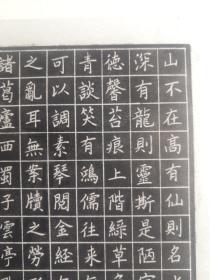 山不在高有仙則名
深有龍則靈斯是陋
德馨苔痕上階綠草
青談笑有鴻儒往來
可以調素琴閱金經
之亂耳無案牘之勞
諸葛廬西蜀子雲亭